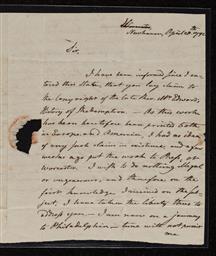 Newhaven, April 28th 1792
Sir,
I have been informed, since I en-
tered this State, that you lay claim to
the copy right of the late Rev. Mr. Edwards,
History of Redemption. — As this work
has been heretofore been printed both
in Europe and America, I had no idea
of any such claim in existence; and a few
weeks ago put the work to Press, at
Worcester. I wish to do nothing illegal
or ungenerous, and therefore on the
first knowledge I received on the sub-
ject, I have taken the liberty thus to
address you. — I am now on a journey
to Philadelphia — time will not permit
me